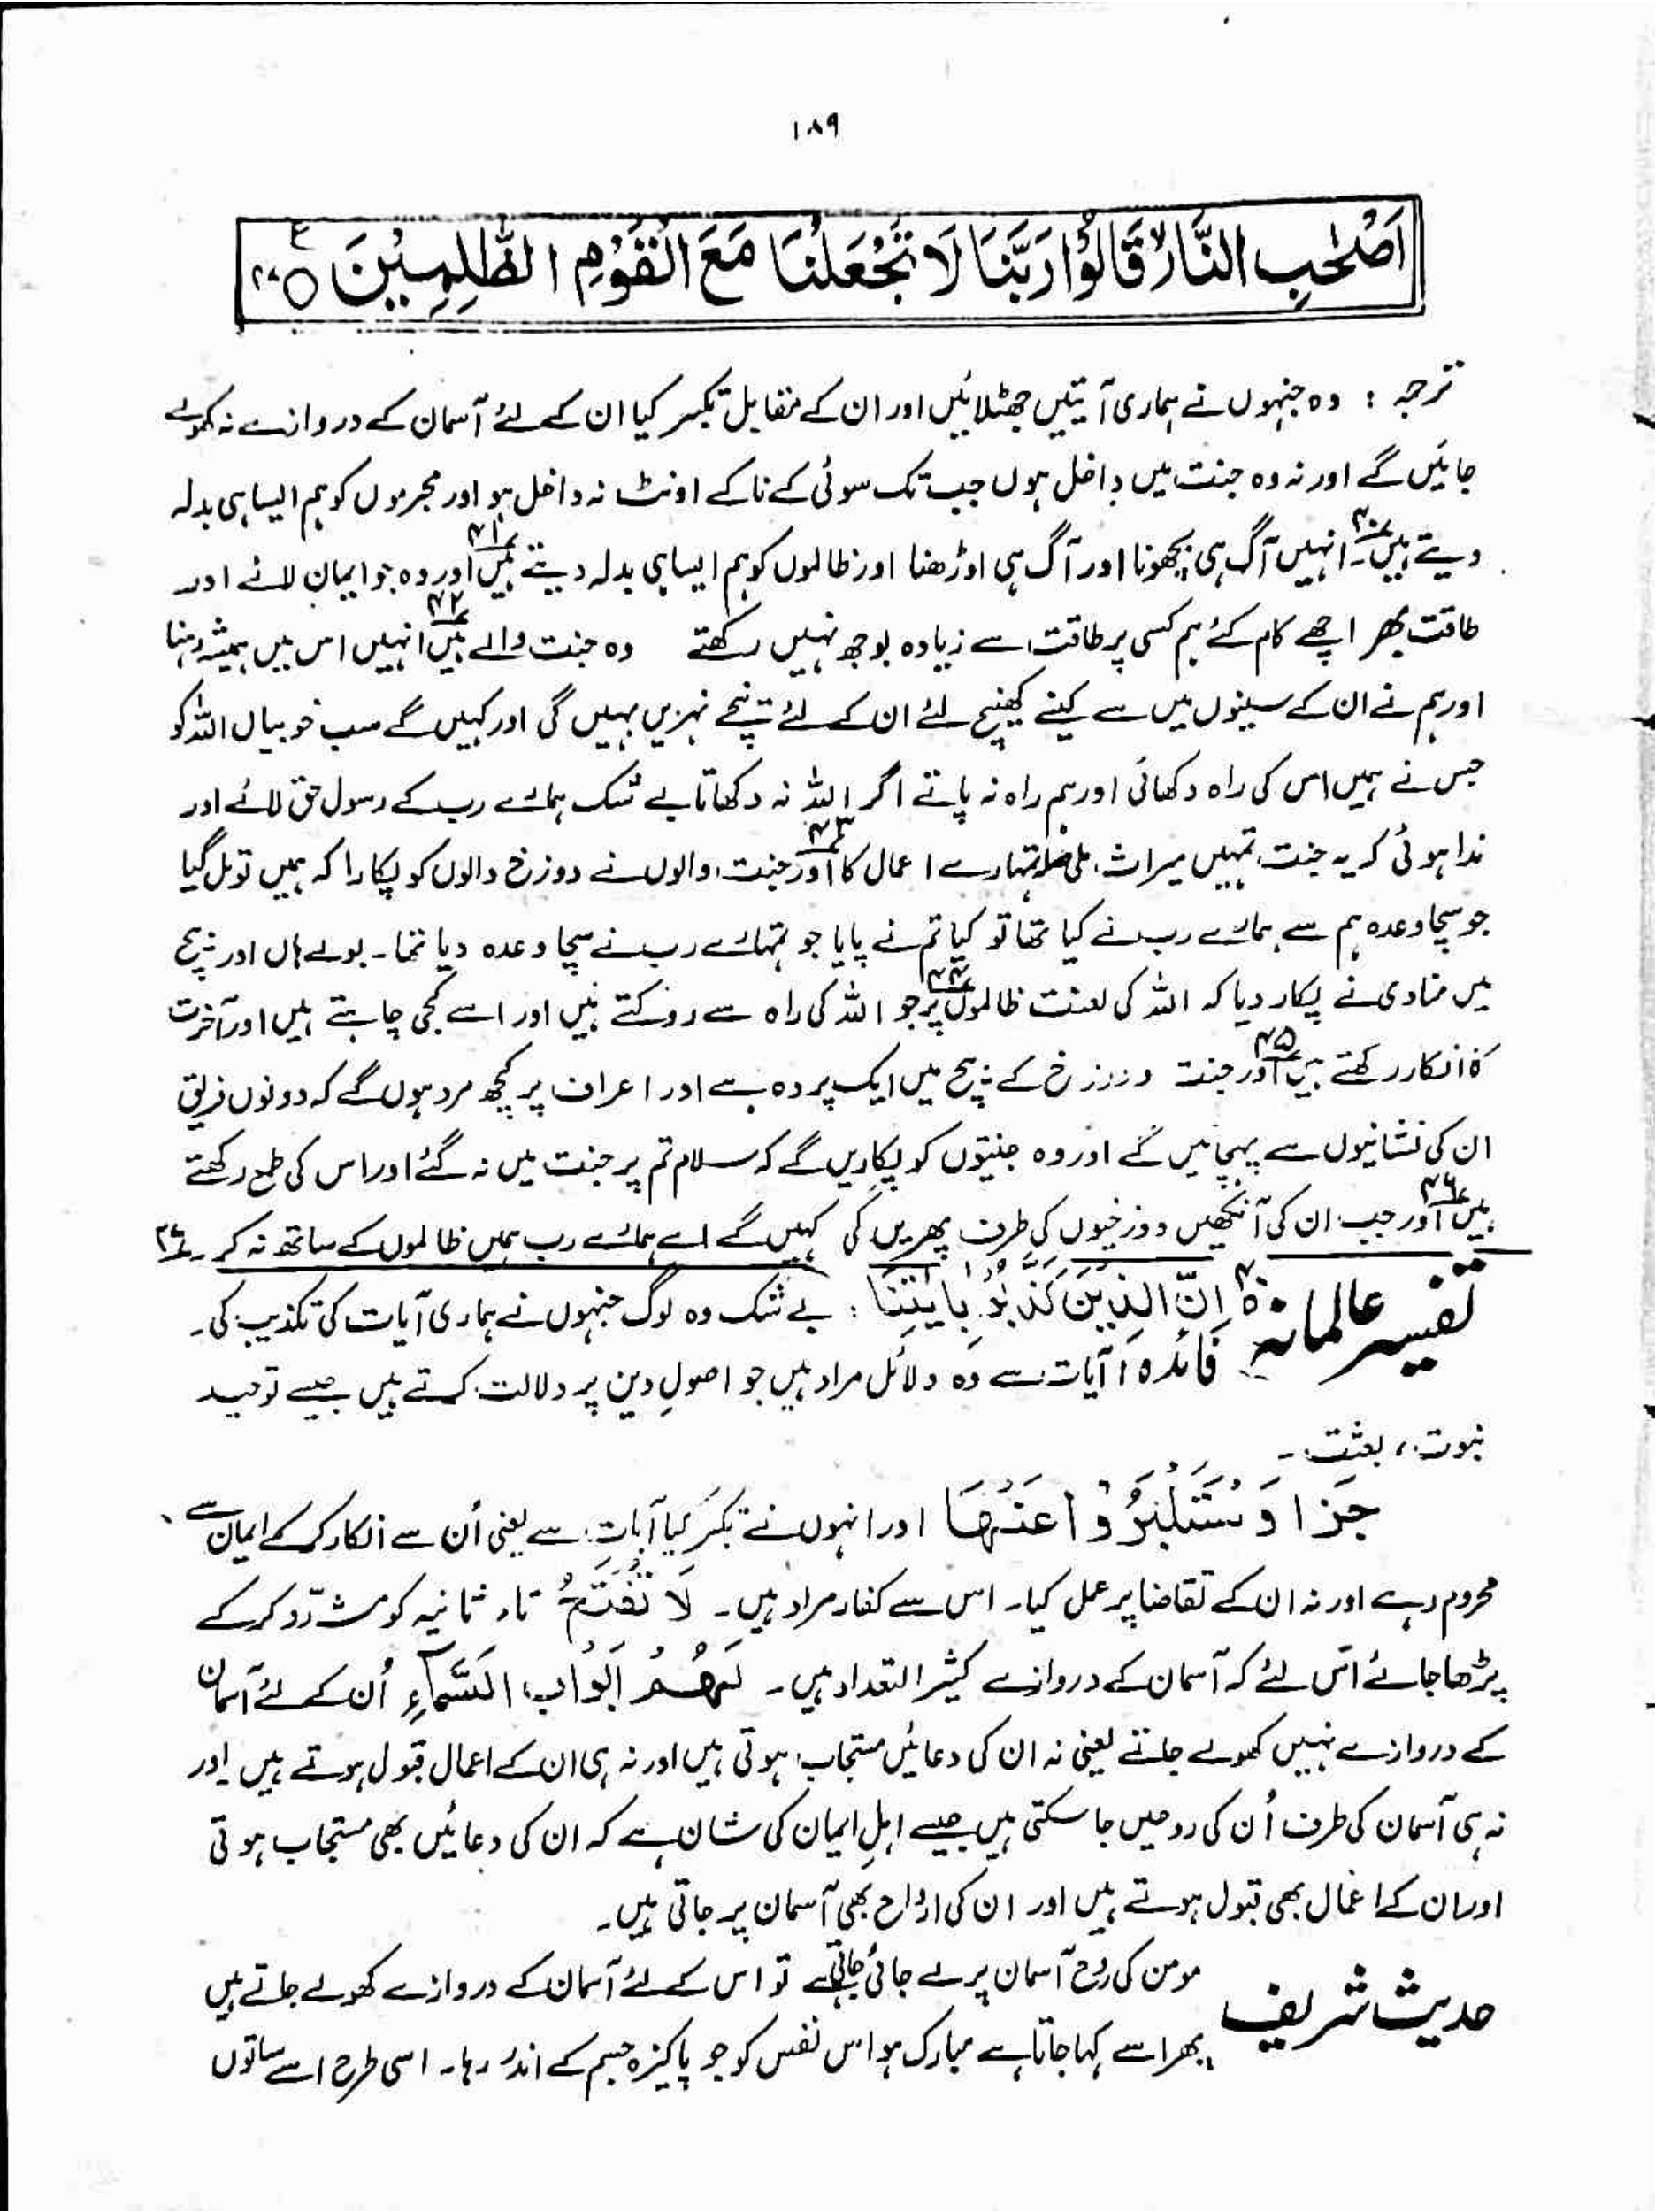 ۱۸۹
اَصْحٰبِ النَّارِ قَالُوْا رَبَّنَا لَا تَجْعَلْنَا مَعَ الْقَوْمِ الظّٰلِمِیْنَ ○ ۴۷
ترجمہ : وہ جنہوں نے ہماری آیتیں جھٹلائیں اور ان کے مقابل تکبر کیا ان کے لئے آسمان کے دروازے نہ کھولے
جائیں گے اور نہ وہ جنت میں داخل ہوں جب تک سوئی کے ناکے اونٹ نہ داخل ہو اور مجرموں کو ہم ایسا ہی بدلہ
دیتے ہیں۔ ۴۰ انہیں آگ ہی بچھونا اور آگ ہی اوڑھنا اور ظالموں کو ہم ایسا ہی بدلہ دیتے ہیں ۴۱ اور وہ جو ایمان لائے اور
طاقت بھر اچھے کام کئے ہم کسی پر طاقت سے زیادہ بوجھ نہیں رکھتے وہ جنت والے ہیں ۴۲ انہیں اس میں ہمیشہ رہنا
اور ہم نے ان کے سینوں میں سے کینے کھینچ لئے ان کے لئے نیچے نہریں بہیں گی اور کہیں گے سب خوبیاں اللہ کو
جس نے ہمیں اس کی راہ دکھائی اور ہم راہ نہ پاتے اگر اللہ نہ دکھاتا بے شک ہمارے رب کے رسول حق لائے اور
ندا ہوئی کہ یہ جنت تمہیں میراث ملی صلہ تمہارے اعمال کا ۴۳ اور جنت والوں نے دوزخ والوں کو پکارا کہ ہمیں تو مل گیا
جو سچا وعدہ ہم سے ہمارے رب نے کیا تھا تو کیا تم نے پایا جو تمہارے رب نے سچا وعدہ دیا تھا۔ بولے ہاں اور بیچ
میں منادی نے پکار دیا کہ اللہ کی لعنت ظالموں پر ۴۴ جو اللہ کی راہ سے روکتے ہیں اور اسے کجی چاہتے ہیں اور آخرت
کا انکار رکھتے ہیں ۴۵ اور جنت و دوزخ کے بیچ میں ایک پردہ ہے اور اعراف پر کچھ مرد ہوں گے کہ دونوں فریق
ان کی نشانیوں سے پہچانیں گے اور وہ جنتیوں کو پکاریں گے کہ سلام تم پر جنت میں نہ گئے اور اس کی طمع رکھتے
ہیں ۴۶ اور جب ان کی آنکھیں دوزخیوں کی طرف پھریں گی کہیں گے اے ہمارے رب ہمیں ظالموں کے ساتھ نہ کر۔ ۴۷
تفسیر عالمانہ ۴۰ اِنَّ الَّذِیْنَ کَذَّبُوْا بِاٰیٰتِنَا : بے شک وہ لوگ جنہوں نے ہماری آیات کی تکذیب کی۔
فائدہ آیات سے وہ دلائل مراد ہیں جو اصولِ دین پر دلالت کرتے ہیں جیسے توحید
نبوت ، بعثت۔
وَاسْتَكْبَرُوْا عَنْهَا اور انہوں نے تکبر کیا آیات سے یعنی اُن سے انکار کر کے ایمان سے
محروم رہے اور نہ ان کے تقاضا پر عمل کیا۔ اس سے کفار مراد ہیں۔ لَا تُفَتَّحُ تاء ثانیہ کو مشدّد کرکے
پڑھا جائے اس لئے کہ آسمان کے دروازے کثیر التعداد ہیں۔ لَهُمْ اَبْوَابُ السَّمَآءِ اُن کے لئے آسمان
کے دروازے نہیں کھولے جاتے یعنی نہ ان کی دعائیں مستجاب ہوتی ہیں اور نہ ہی ان کے اعمال قبول ہوتے ہیں اور
نہ ہی آسمان کی طرف اُن کی روحیں جا سکتی ہیں جیسے اہلِ ایمان کی شان ہے کہ ان کی دعائیں بھی مستجاب ہوتی
اور ان کے اعمال بھی قبول ہوتے ہیں اور ان کی ارواح بھی آسمان پر جاتی ہیں۔
حدیث شریف مومن کی روح آسمان پر لے جائی جاتی ہے تو اس کے لئے آسمان کے دروازے کھولے جاتے ہیں
پھر اسے کہا جاتا ہے مبارک ہو اس نفس کو جو پاکیزہ جسم کے اندر رہا۔ اسی طرح اسے ساتوں